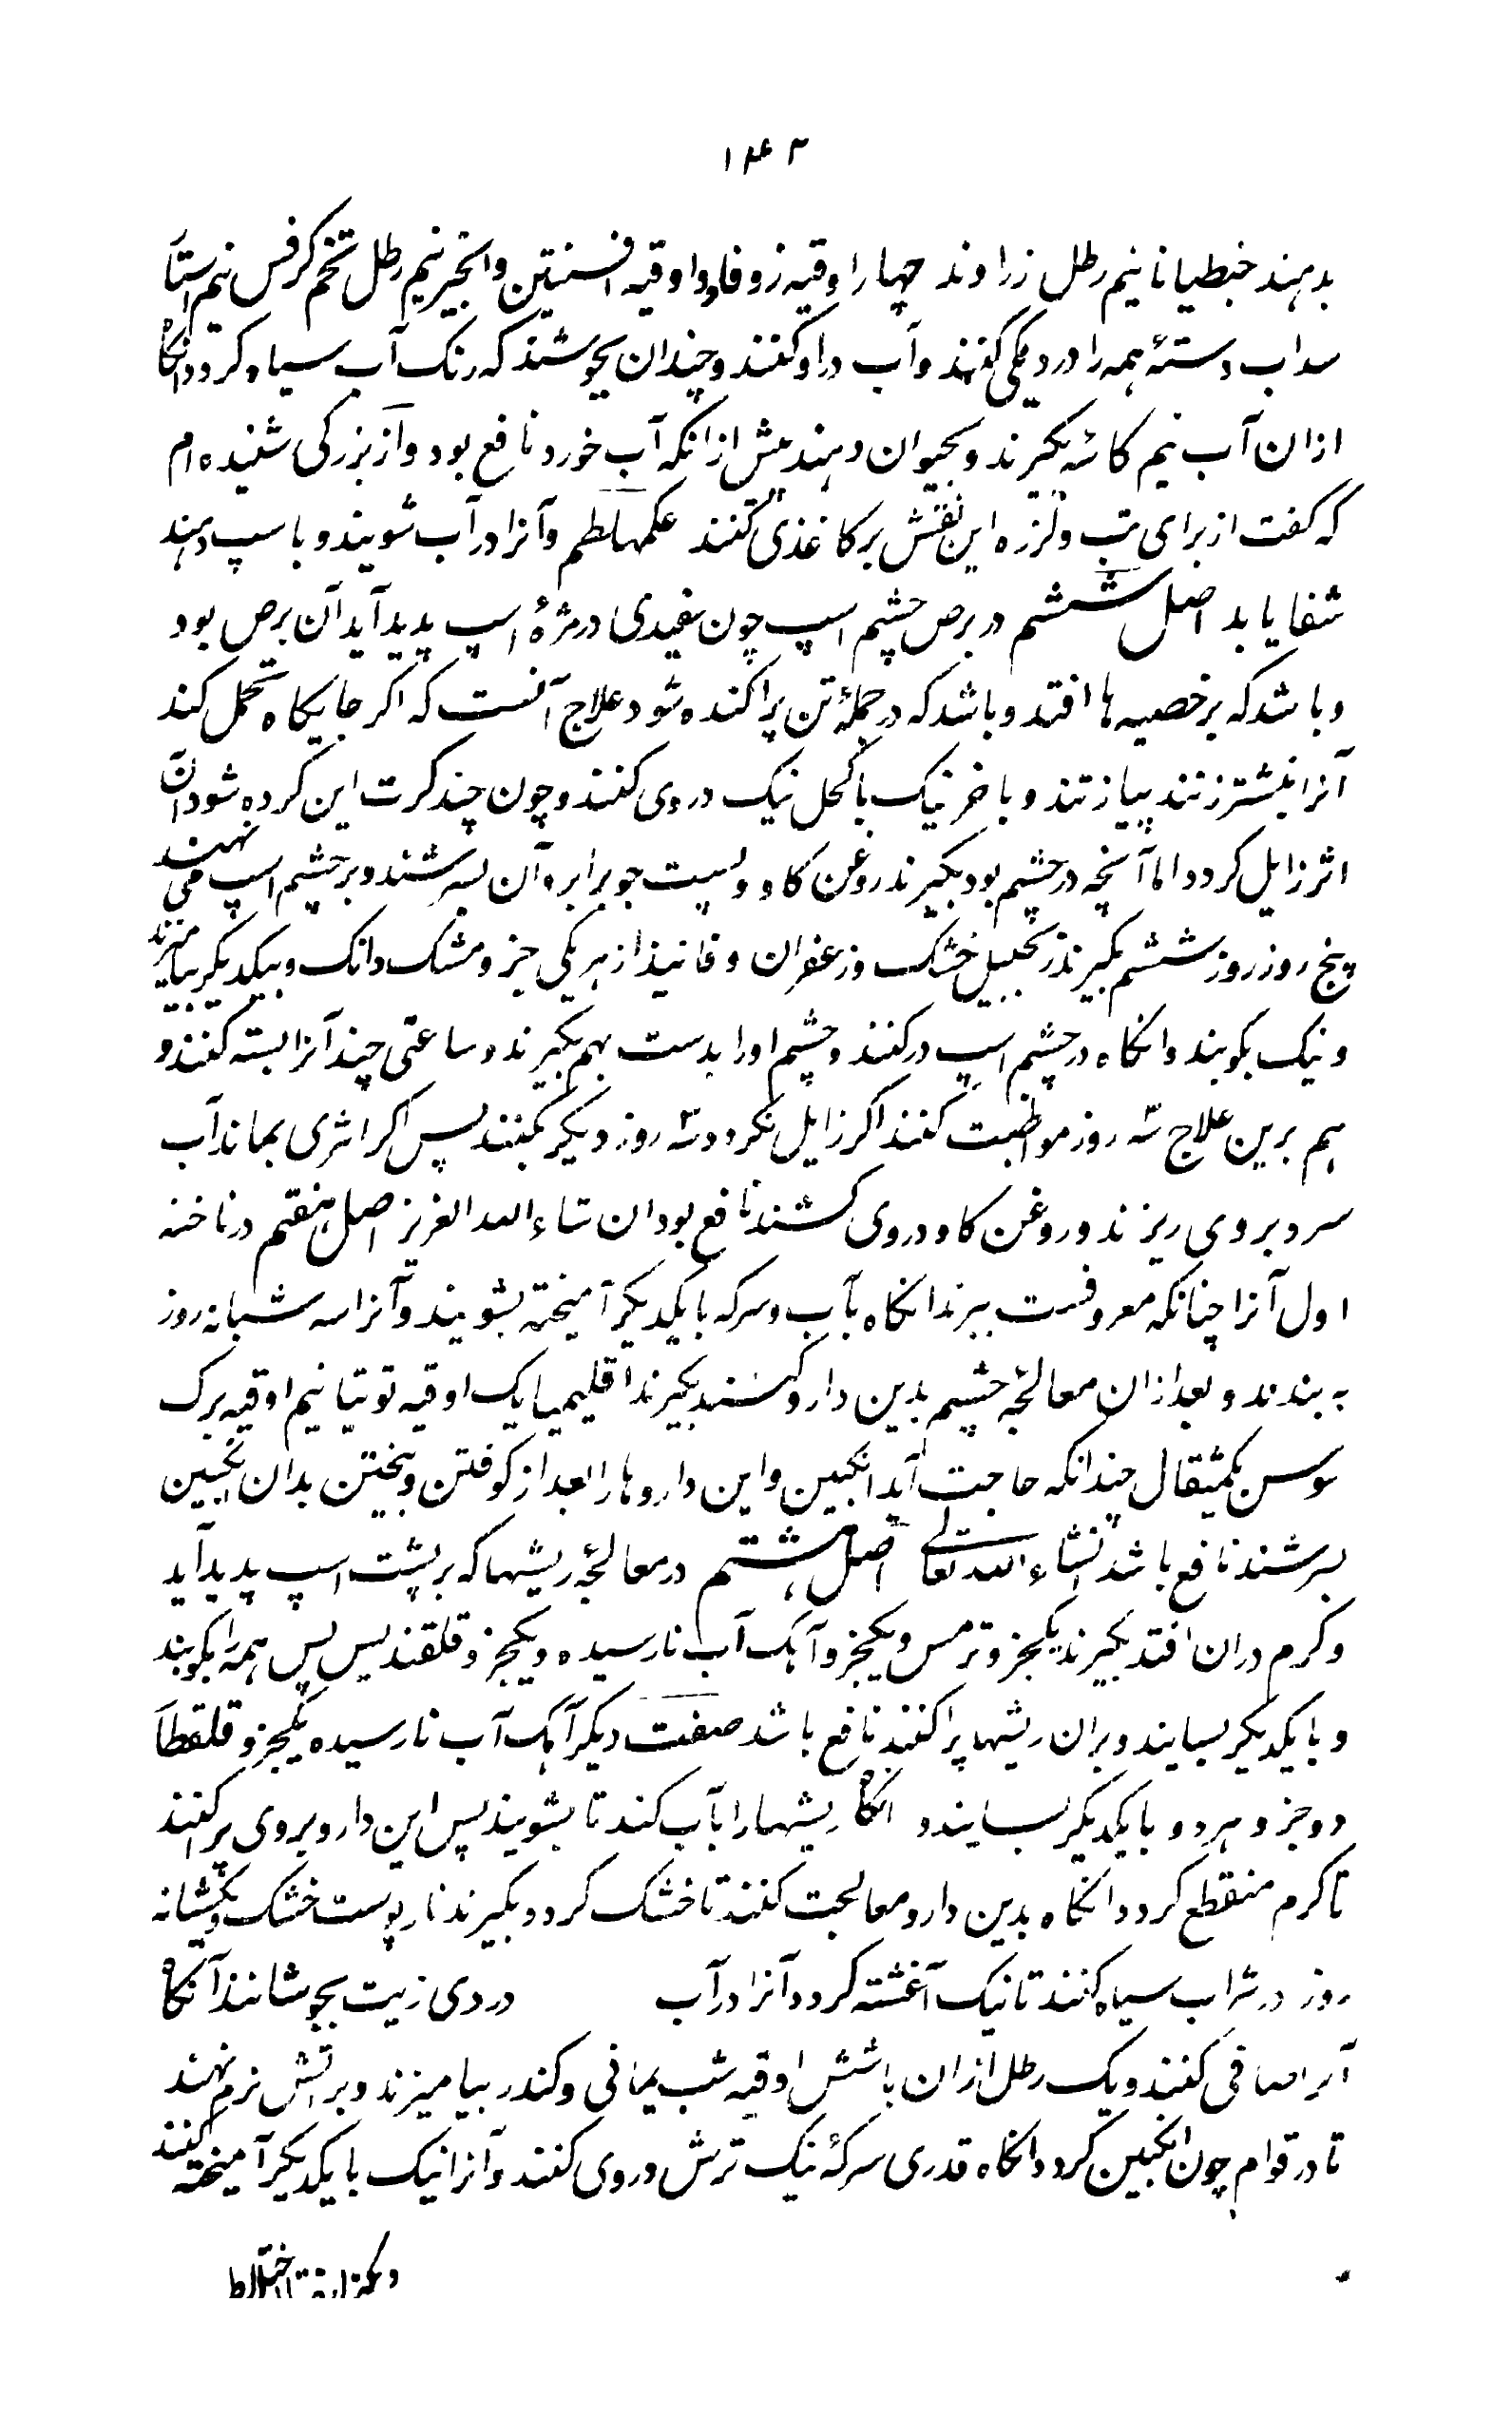 ۱۴۳
بدهند خبطیانا نیم رطل زراوند چهار اوقیه زوفا دو اوقیه افسنتین وانجیر نیم رطل تخم کرفس نیم استا
سداب دستهٔ همه را در دیکی کنند و آب در او کنند و چندان بجوشند که رنک آب سیاه کردد انکاه
ازان آب نیم کاسه بکیرند و بحیوان دهند پیش ازانکه آب خورد نافع بود و از بزرکی شنیده ام
که کفت از برای تب ولرزه این نقش بر کاغذی کنند عکمهلطم و آنرا در آب شویند و باسپ دهند
شفا یابد اصل ششم در برص چشم اسپ چون سفیدی در مژهٔ اسپ پدید آید آن برص بود
و باشد که بر خصیه ها افتد و باشد که در جملهٔ تن پراکنده شود علاج آنست که اکر جایکاه تحمل کند
آنرا نیشتر زنند بیازنند و با خر نیک با کحل نیک در وی کنند و چون چند کرت این کرده شود آن
اثر زایل کردد اما آنچه در چشم بود بکیرند روغن کاو و پست جو برابر و آن بسرشند و بر چشم اسپ می نهند
پنج روز روز ششم بکیرند زنجبیل خشک و زعفران و فانیذ از هر یکی جز و مشک دانک و بیکدیکر بیامیزند
و نیک بکوبند و انکاه در چشم اسپ در کنند و چشم اورا بدست بهم بکیرند و ساعتی چند آنرا بسته کنند و
هم برین علاج سه روز مواظبت کنند اکر زایل نکردد سه روز دیکر بکنند پس اکر اثری بماند آب
سرد بروی ریزند و روغن کاو دروی کشند نافع بود ان شاء الله العزیز اصل هفتم در ناخنه
اول آنرا چنانکه معروفست ببرند انکاه بآب و سرکه با یکدیکر آمیخته بشویند و آنرا سه شبانه روز
به بندند و بعد ازان معالجهٔ چشم بدین دارو کنند بکیرند اقلیمیا یک اوقیه توتیا نیم اوقیه برک
سوسن یکمثقال چندانکه حاجت آید انکبین و این داروها را بعد از کوفتن و بیختن بدان انکبین
بسرشند نافع باشد انشاء الله تعالی اصل هشتم در معالجهٔ ریشها که بر پشت اسپ پدید آید
و کرم دران افتد بکیرند یکجزو ترمس و یکجزو آهک آب نارسیده و یکجزو قلقند پس همه را بکوبند
و با یکدیکر بسایند و بران ریشها پراکنند نافع باشد صفت دیکر آهک آب نارسیده یکجزو قلقطا
دو جزو هر دو با یکدیکر بسایند و انکاه ریشها را بآب کند تا بشویند پس این دارو بروی پراکنند
تا کرم منقطع کردد انکاه بدین دارو معالجت کنند تا خشک کردد بکیرند نار پوست خشک و یکشبانه
روز در شراب سیاه کنند تا نیک آغشته کردد آنرا در آب دردی زیت بجوشانند آنکاه
آنرا صافی کنند و یک رطل ازان با شش اوقیه شب یمانی و کندر بیامیزند و بر آتش نرم نهند
تا در قوام چون انکبین کردد انکاه قدری سرکهٔ نیک ترش دروی کنند و آنرا نیک با یکدیکر آمیخته کنند